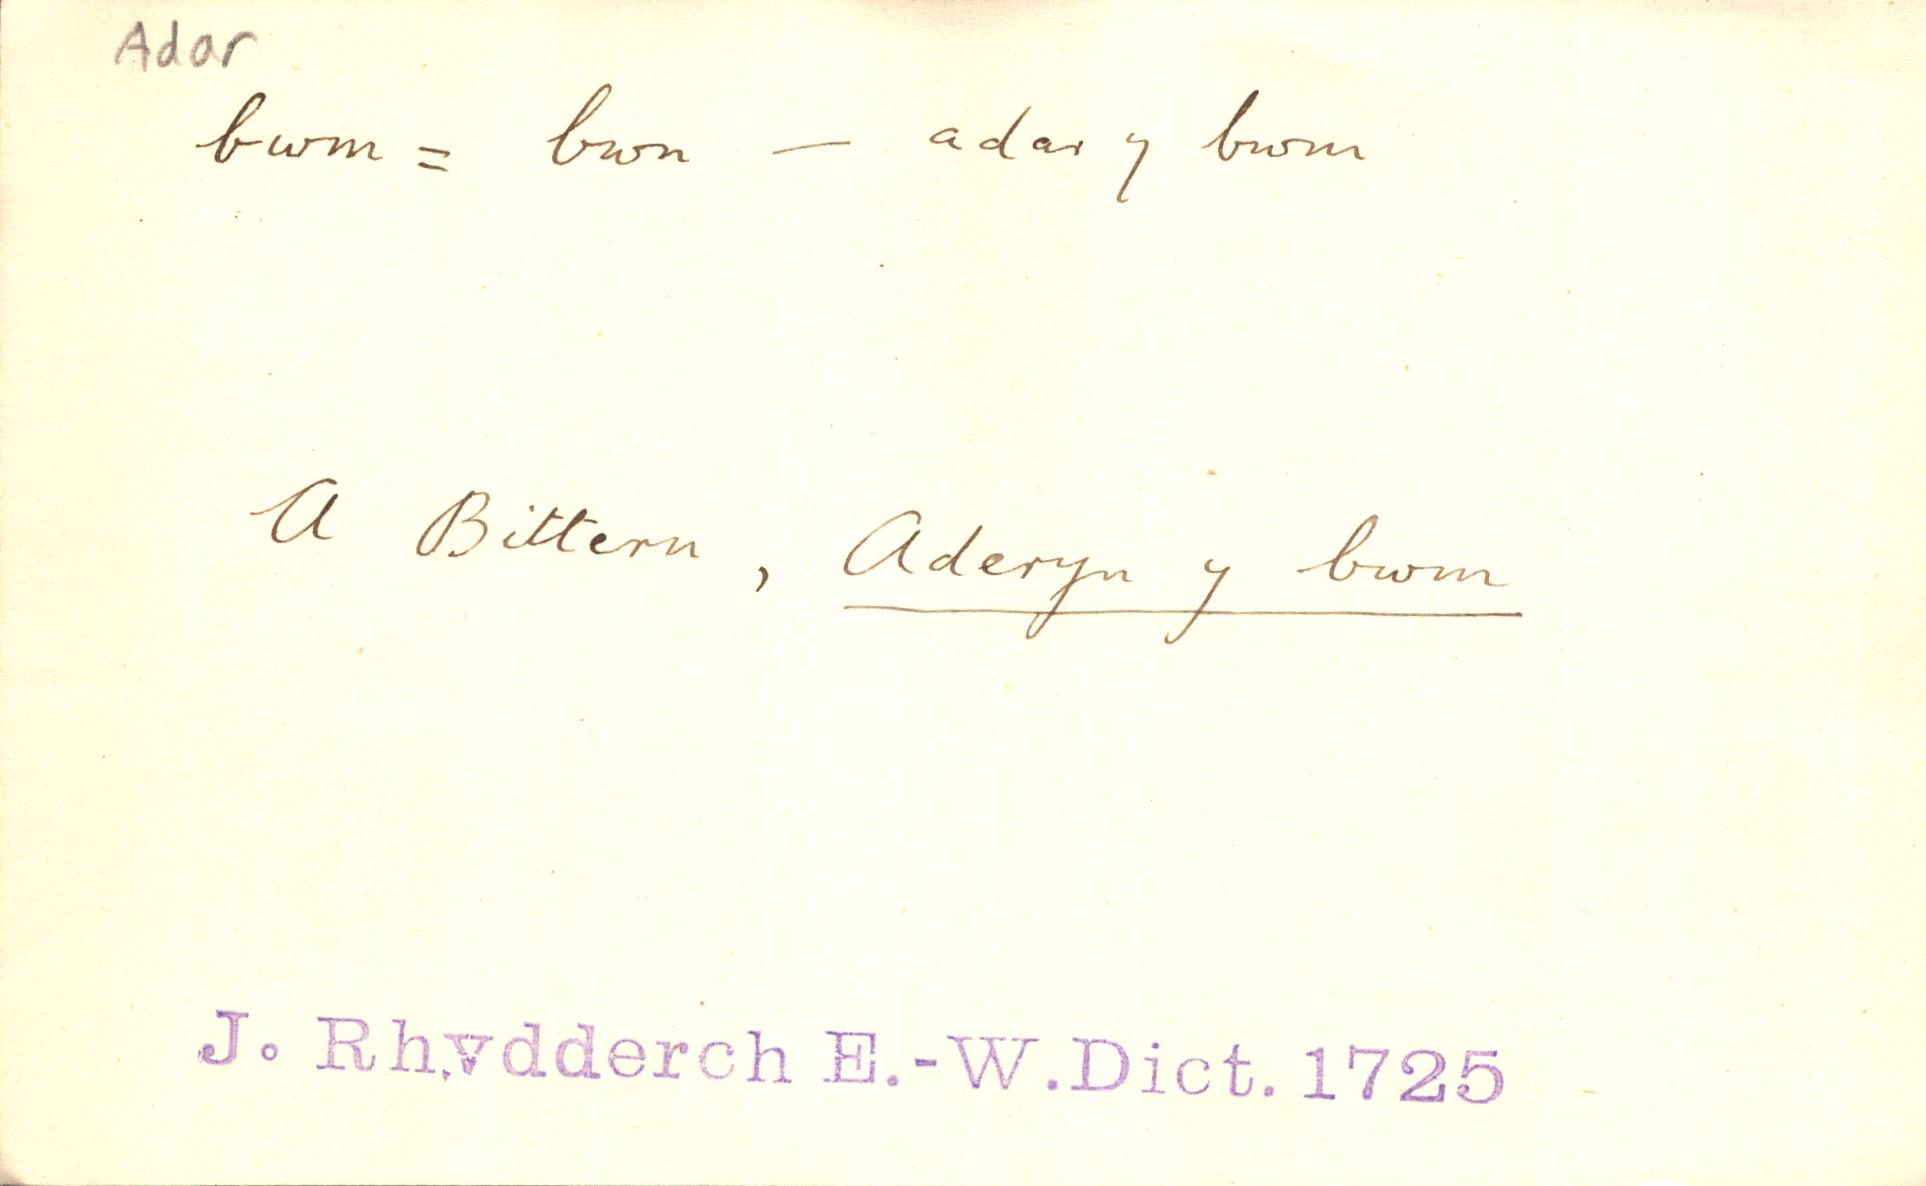 Adar
bwm = bwn — adar y bwm
A Bittern, Aderyn y bwm
J. Rhydderch E.-W.Dict. 1725